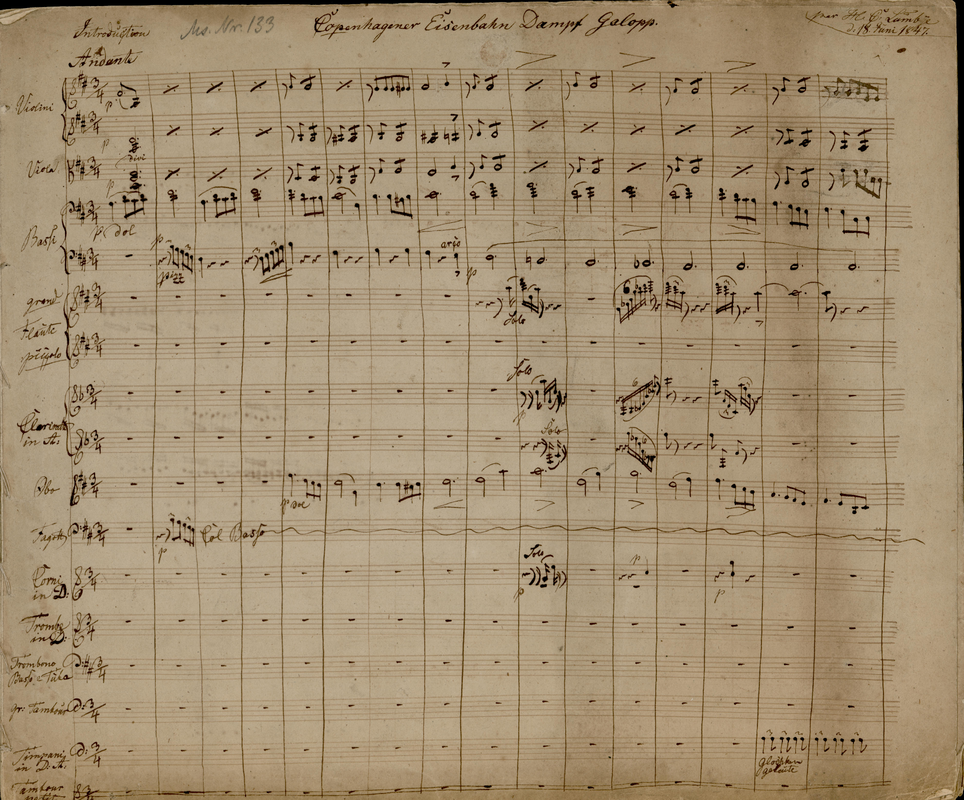 Introduction
Ms. Nr. 133
Copenhagener Eisenbahn Dampf Galopp.
per H. C. Lumbye
d. 18 Juni 1847.
Andante
Violini
p
p
divi
Viola
p
Bassi
p dol
p
pizz
arco
p
grand
Solo
Flaute
piccolo
Solo
p
6
Clarinetti
in A.
Solo
p
Oboe
p
Fagotti
Col Basso
p
Corni
in D.
Solo
p
p
p
Trombe
in D.
Trombono
Basso e Tuba
gr: Tambour
Timpani
in D. A.
Glocken
geläute
Tambour